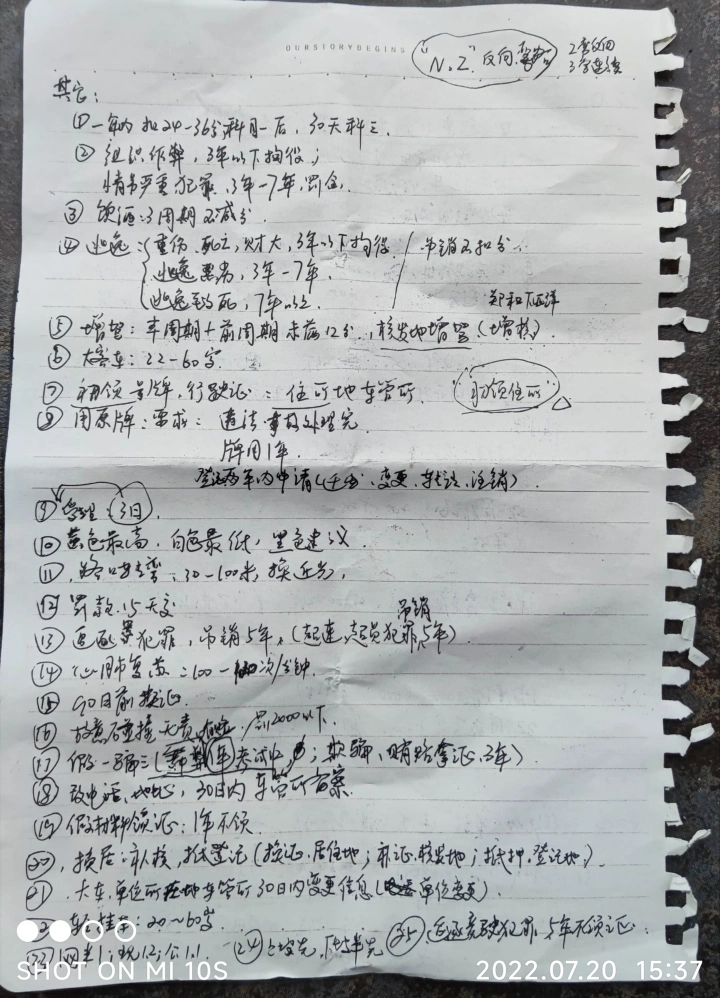 OURSTORYBEGINS
"N.Z" 反向
其它:
① 一年内扣24-36分科目一后, 30天科三.
② 组织作弊, 3年以下拘役;
情节严重犯罪, 3年-7年, 罚金.
③ 饮酒:3周期不减分.
④ 逃逸: 重伤.死亡,财大, 3年以下拘役 / 吊销不扣分.
逃逸恶劣, 3年-7年.
逃逸致死, 7年以上.
郑和下西洋
⑤ 增驾: 本周期+前周期未满12分, 核发地增驾(增核).
⑥ 大客车: 22-60岁.
⑦ 初领号牌,行驶证: 住所地车管所. "初领住所"
⑧ 用原牌:要求: 违法事故处理完
牌用1年.
登记两年内申请(迁出、变更、转让、注销).
⑨ 3日.
⑩ 黄色最高, 白色最低, 黑色建议.
11, 路口转弯:30-100米, 换近光,
12 罚款.15天交
吊销
13 追逐犯罪, 吊销5年, (超速,超员犯罪,5年)
14 心肺复苏:100-次/分钟.
15 90日前换证.
16 故意碰撞无责, 罚2000以下.
17 假一骗三(考试中, ; 欺骗, 贿赂拿证.3年).
18 改电话,地址, 30日内车管所备案.
19 假材料领证: 1年不领.
20, 换居:补核, 抵登记(换证.居住地; 补证.核发地; 抵押,登记地).
21 .大车.单位所在地车管所30日内变更信息(单位变更).
20~60岁.
24 上坡先, 下坡半先 25 追逐竞驶犯罪, 5年不领证.
SHOT ON MI 10S
2022.07.20 15:37